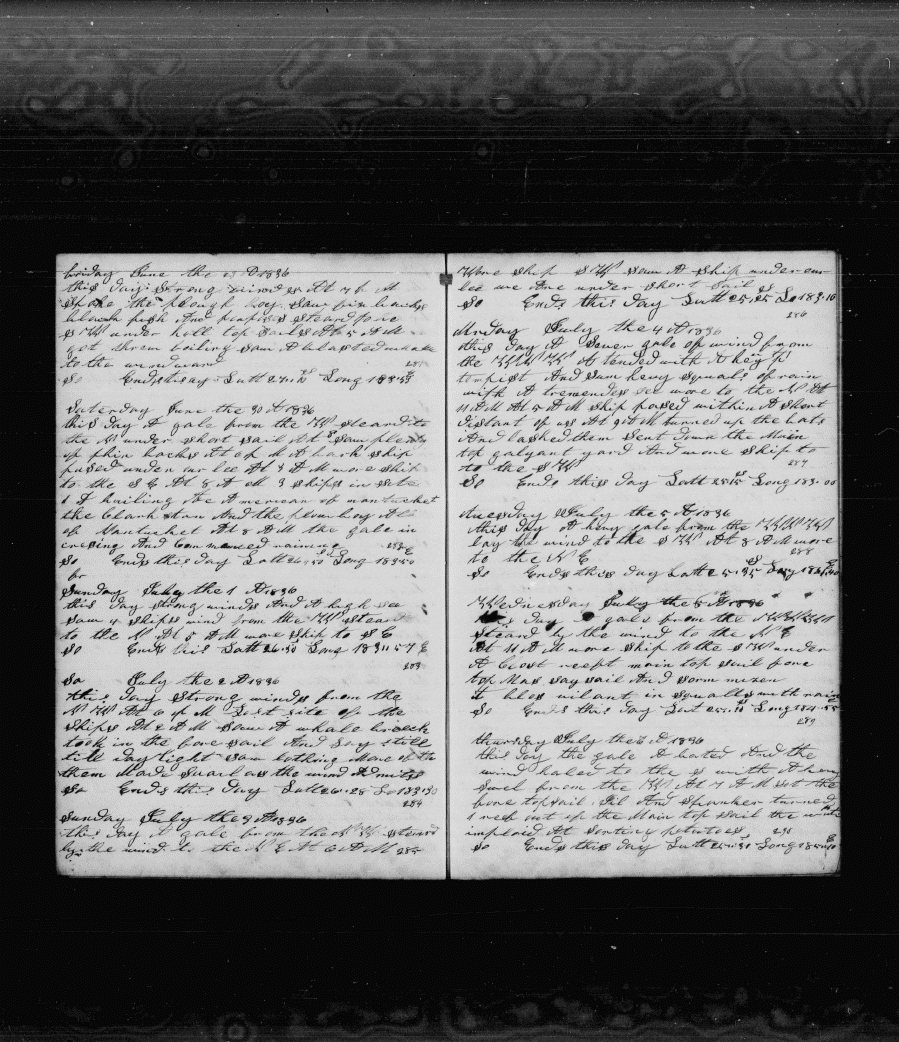 friday June the 29 A 1836
this day Strong winds At 7 P M
Spoke the plough boy Saw fin backs
black fish And
S W under top Sails At 5 A M
got threw boiling Saw A blasted whale
to the windward 281
So Ends this day Latt Long
Saturday June the 30 A 1836
this day A gale from the W steard to
the N under short Sail At 8 Saw plenty
of phin backs At 6 P M A bark ship
pased under our lee At 3 A M wore ship
to the S E At 8 A M 3 ships in site
1 A hailing the American of nantucket
the Clark Stan And the plow boy Als
of Nantucket At 8 A M the gale in
cresing And Commenced raining 282
So Ends this day Latt 26-50 Long 183-50 E
Sunday July the 1 A 1836
this day strong winds And A high sea
Saw 4 ships wind from the W steard
to the N At 5 A M wore ship to S E
So Ends this Latt 26-50 Long 183-57 E
283
So July the 2 A 1836
this day Strong winds from the
N W At 6 P M Lost site of the
Ships At 2 A M Saw A whale breech
took in the fore sail And Lay still
till daylight Saw nothing More of th
them Made Suail as the wind Admits
So Ends this day Latt 26-28 Lo 183-30
284
Sunday July the 3 A 1836
this day A gale from the N W steard
by the wind to the N E At 6 A M 285
Wore ship S W Saw A Ship under our
lee we Are under Short Sail
So Ends this day Latt 25-25 Lo 183-10
286
Mnday July the 4 A 1836
this day A Sever gale of wind from
the W N W Attended with A hevy
tempest And Sum hevy squals of rain
with A tremendes See wore to the N At
11 A M At 5 A M Ship pased within A Short
distant of us At 9 A M turned up the bots
And lashed them Sent down the Main
top galyant yard And wore ship to
to the S W 287
So Ends this day Latt 25-15 Long 183-00
tuesday July the 5 A 1836
this day A hevy gale from the W N W
lay the wind to the S W At 8 A M wore
to the N E 288
So Ends this day Latt 25-35 Long
Wednesday July the 6 A 1836
this day gale from the
Steard by the wind to the N E
At 11 A M wore ship to the S W under
A Close reeft main top sail fore
top Mas say sail And Sorm mizen
it bloes vilant in squalls with rain
So Ends this day Latt 25 Long
289
thursday July the A 1836
this day the gale A bated And the
wind haled to the S with A hevy
swel from the W At 7 A M set the
fore topsail Jib And Spanker turned
1 reef out of the Main top sail the
imploid At sorting potatoes 290
So Ends this day Latt Long